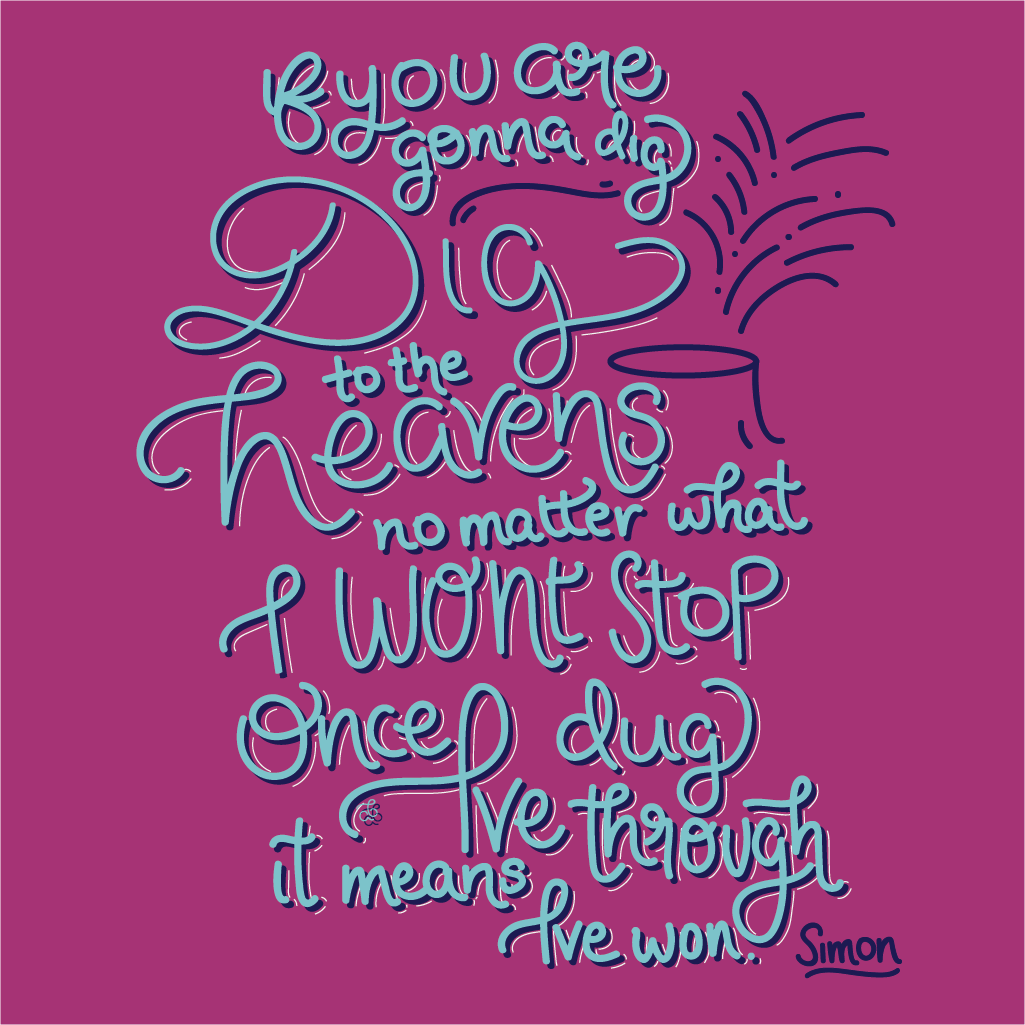 If you are
gonna dig
Dig
to the
heavens
no matter what
I wont stop
Once I've dug
through
it means
I've won.
Simon